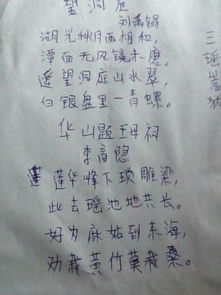 望洞庭
刘禹锡
湖光秋月两相和,
潭面无风镜未磨。
遥望洞庭山水翠,
白银盘里一青螺。
华山题王母祠
李商隐
莲华峰下锁雕梁,
此去瑶池地共长。
好为麻姑到东海,
劝栽黄竹莫栽桑。
三